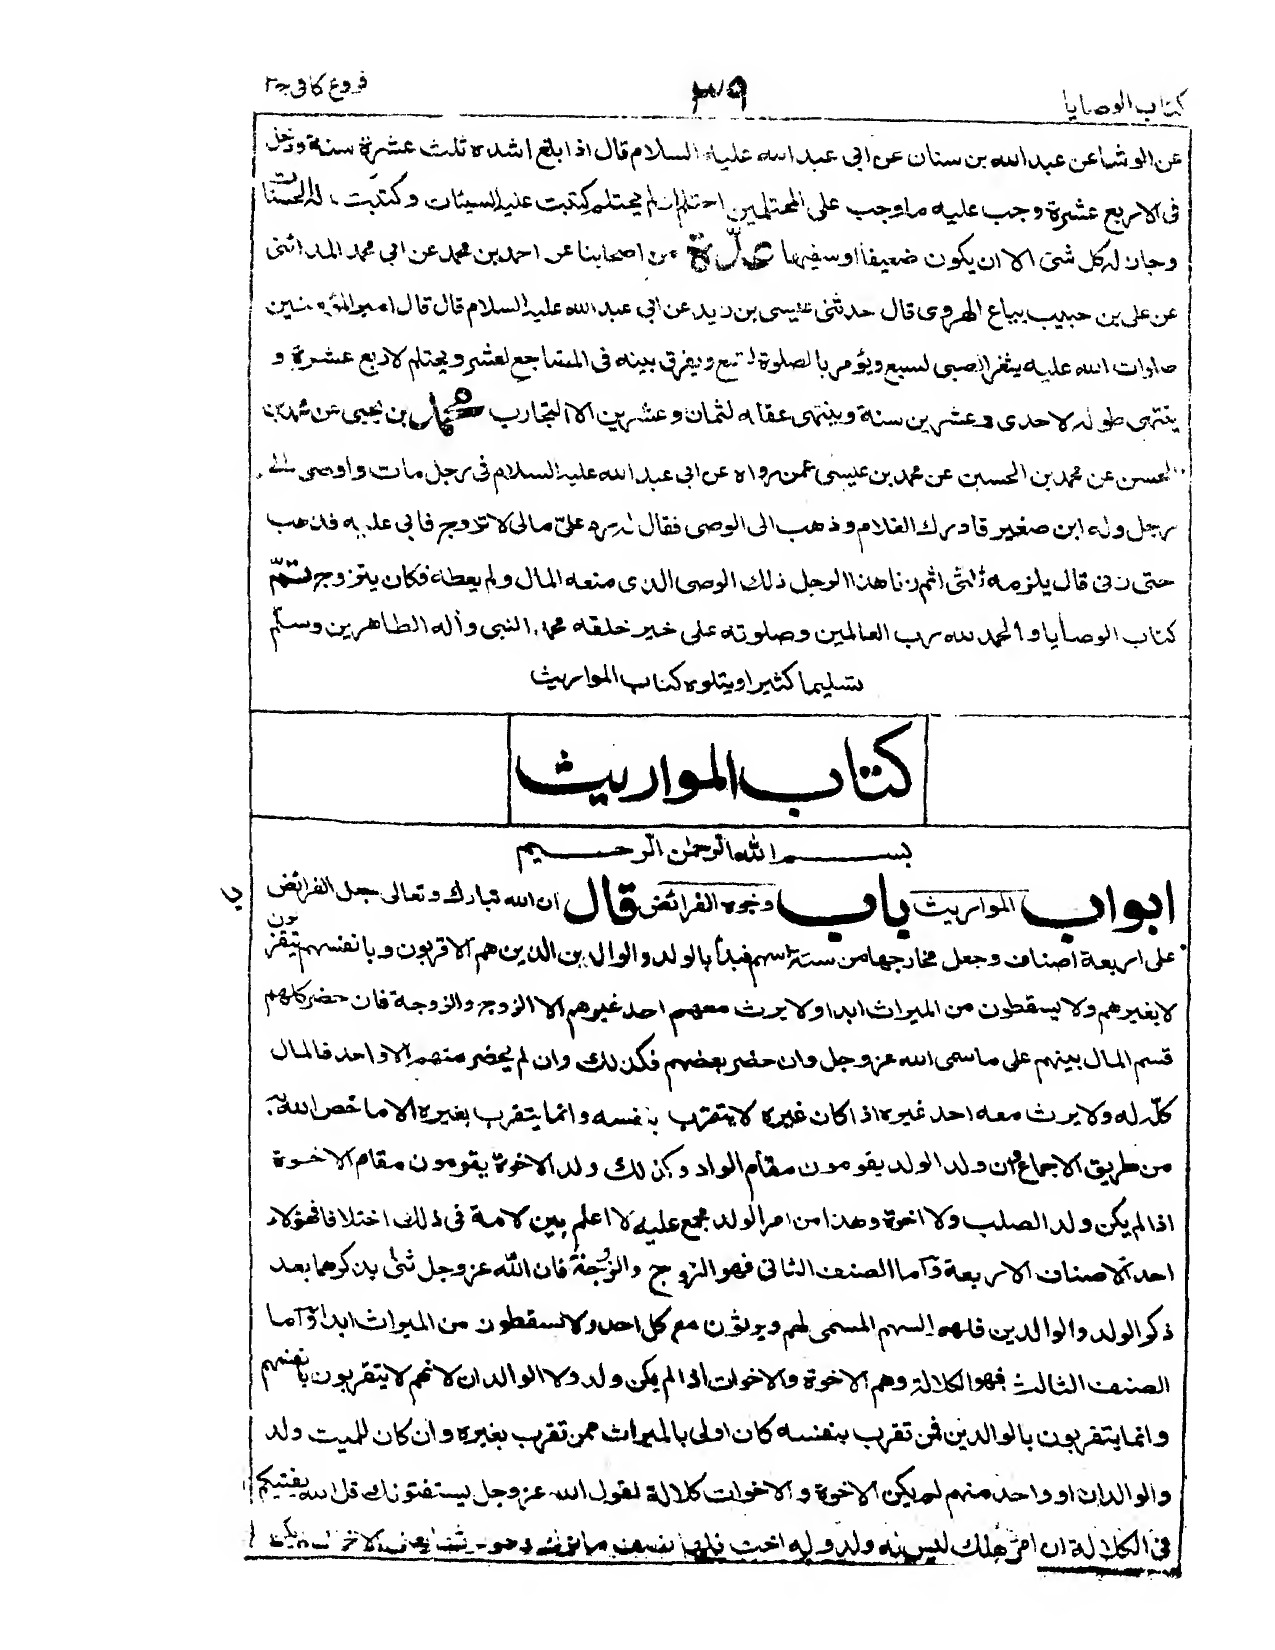 كتاب الوصايا
٣٩
فروع كافى ج٢
عن الوشا عن عبد الله بن سنان عن ابى عبد الله عليه السلام قال اذا بلغ اشده ثلث عشرة سنة ودخل
فى الاربع عشرة وجب عليه ما وجب على المحتلمين احتلم او لم يحتلم كتبت عليه السيئات وكتبت له الحسنات
وجاز له كل شئ الا ان يكون ضعيفا او سفيها عدّة من اصحابنا عن احمد بن محمد عن ابى محمد المدائنى
عن على بن حبيب بياع الهروى قال حدثنى عيسى بن زيد عن ابى عبد الله عليه السلام قال قال امير المؤمنين
صلوات الله عليه يثغر الصبى لسبع ويؤمر بالصلوة لتسع ويفرق بينه فى المضاجع لعشر ويحتلم لاربع عشرة و
ينتهى طوله لاحدى وعشرين سنة وينتهى عقله لثمان وعشرين الا التجارب محمد بن يحيى عن محمد بن
الحسن عن محمد بن الحسين عن محمد بن عيسى عمن رواه عن ابى عبد الله عليه السلام فى رجل مات واوصى الى
رجل وله ابن صغير فادرك الغلام وذهب الى الوصى فقال له رد علىّ مالى لاتزوج فابى عليه فذهب
حتى زنى قال يلزم ثلثى اثم زنا هذا الرجل ذلك الوصى الذى منعه المال ولم يعطه فكان يتزوج تمّ
كتاب الوصايا والحمد لله رب العالمين وصلوته على خير خلقه محمد النبى وآله الطاهرين وسلّم
تسليما كثيرا ويتلوه كتاب المواريث
كتاب المواريث
بسم الله الرحمن الرحيم
ابواب المواريث باب وجوه الفرائض قال ان الله تبارك وتعالى جعل الفرائض
على اربعة اصناف وجعل مخارجها من ستة اسهم فبدأ بالولد والوالدين الذين هم الاقربون وبانفسهم يتقربون
لا بغيرهم ولا يسقطون من الميراث ابدا ولا يرث معهم احد غيرهم الا الزوج والزوجة فان حضر كلهم
قسم المال بينهم على ما سمى الله عز وجل وان حضر بعضهم فكذلك وان لم يحضر منهم الا واحد فالمال
كلّه له ولا يرث معه احد غيره اذا كان غيره لا يتقرب بنفسه وانما يتقرب بغيره الا ما خص الله به
من طريق الاجماع ان ولد الولد يقومون مقام الولد وكذلك ولد الاخوة يقومون مقام الاخوة
اذا لم يكن ولد الصلب ولا اخوة وهذا من امر الولد مجمع عليه لا اعلم بين الامة فى ذلك اختلافا فهؤلاء
احد الاصناف الاربعة وآما الصنف الثانى فهو الزوج والزوجة فان الله عز وجل ثنى بذكرهما بعد
ذكر الولد والوالدين فلهم السهم المسمى لهم ويرثون مع كل احد ولا يسقطون من الميراث ابدا وآما
الصنف الثالث فهو الكلالة وهم الاخوة والاخوات اذا لم يكن ولد ولا الوالدان لانهم لا يتقربون بانفسهم
وانما يتقربون بالوالدين فمن تقرب بنفسه كان اولى بالميراث ممن تقرب بغيره وان كان للميت ولد
والوالدان او واحد منهم لم يكن الاخوة والاخوات كلالة لقول الله عز وجل يستفتونك قل الله يفتيكم
فى الكلالة ان امرؤ هلك ليس له ولد وله اخت فلها نصف ما ترك وهو يرثها